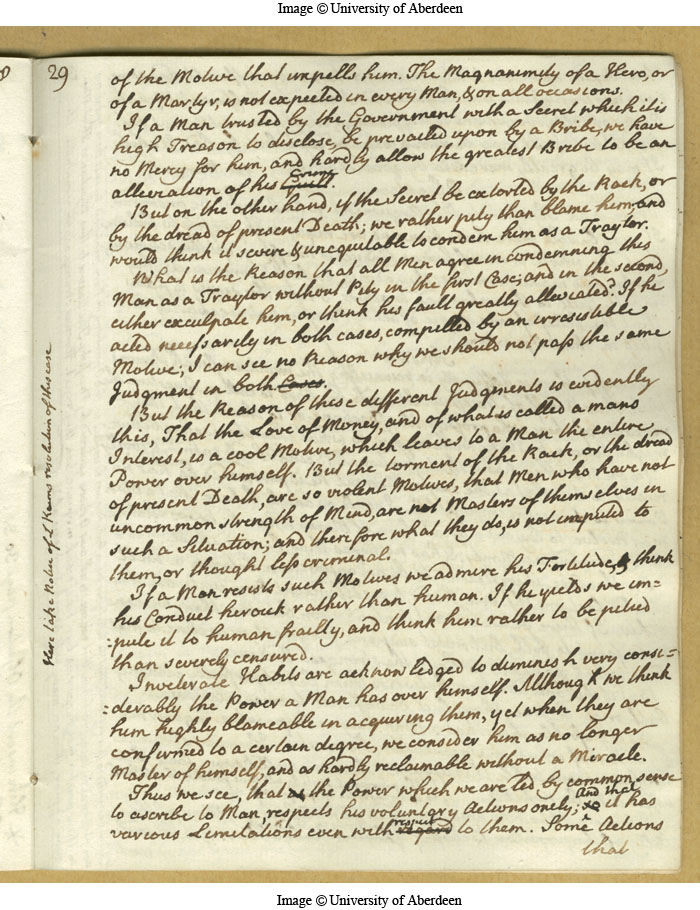 Image © University of Aberdeen
29
of the Motive that impells him. The Magnanimity of a Hero, or
of a Martyr, is not expected in every Man, & on all occasions.
If a Man trusted by the Government with a Secret which it is
high Treason to disclose, be prevailed upon by a Bribe, we have
no Mercy for him, and hardly allow the greatest Bribe to be an
Crime
alleviation of his Guilt.
But on the other hand, if the Secret be extorted by the Rack, or
by the dread of present Death; we rather pity than blame him, and
would think it severe & unequitable to condem him as a Traytor.
What is the Reason that all Men agree in condemning this
Man as a Traytor without Pity in the first Case; and in the second,
either exculpate him, or think his fault greatly alleviated? If he
acted necessarily in both cases, compelled by an irresistible
Motive; I can see no Reason why we should not pass the same
Judgment in both Cases.
But the Reason of these different Judgments is evidently
this, That the Love of Money, and of what is called a mans
Interest, is a cool Motive, which leaves to a Man the entire
Power over himself. But the torment of the Rack, or the dread
of present Death, are so violent Motives, that Men who have not
uncommon strength of Mind, are not Masters of themselves in
such a Situation; and therefore what they do, is not imputed to
them, or thought less criminal.
If a Man resists such Motives we admire his Fortitude, & think
his Conduct heroick rather than human. If he yields we im=
=pute it to human frailty, and think him rather to be pitied
than severely censured.
Inveterate Habits are acknowledged to diminish very consi=
=derably the Power a Man has over himself. Although we think
him highly blameable in acquiring them, yet when they are
confirmed to a certain degree, we consider him as no longer
Master of himself, and as hardly reclaimable without a Miracle.
Thus we see, that the Power which we are led by common sense
And that
to ascribe to Man, respects his voluntary Actions onely; it has
respect
various Limitations even with regard to them. Some Actions
that
Here take Notice of L Kaims resolution of this case
Image © University of Aberdeen